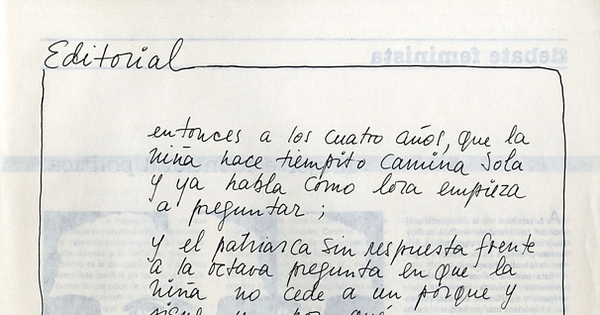 Editorial
debate feminista
entonces a los cuatro años, que la
niña hace tiempito camina sola
y ya habla como lora empieza
a preguntar;
y el patriarca sin respuesta frente
a la octava pregunta en que la
niña no cede a un pórque y